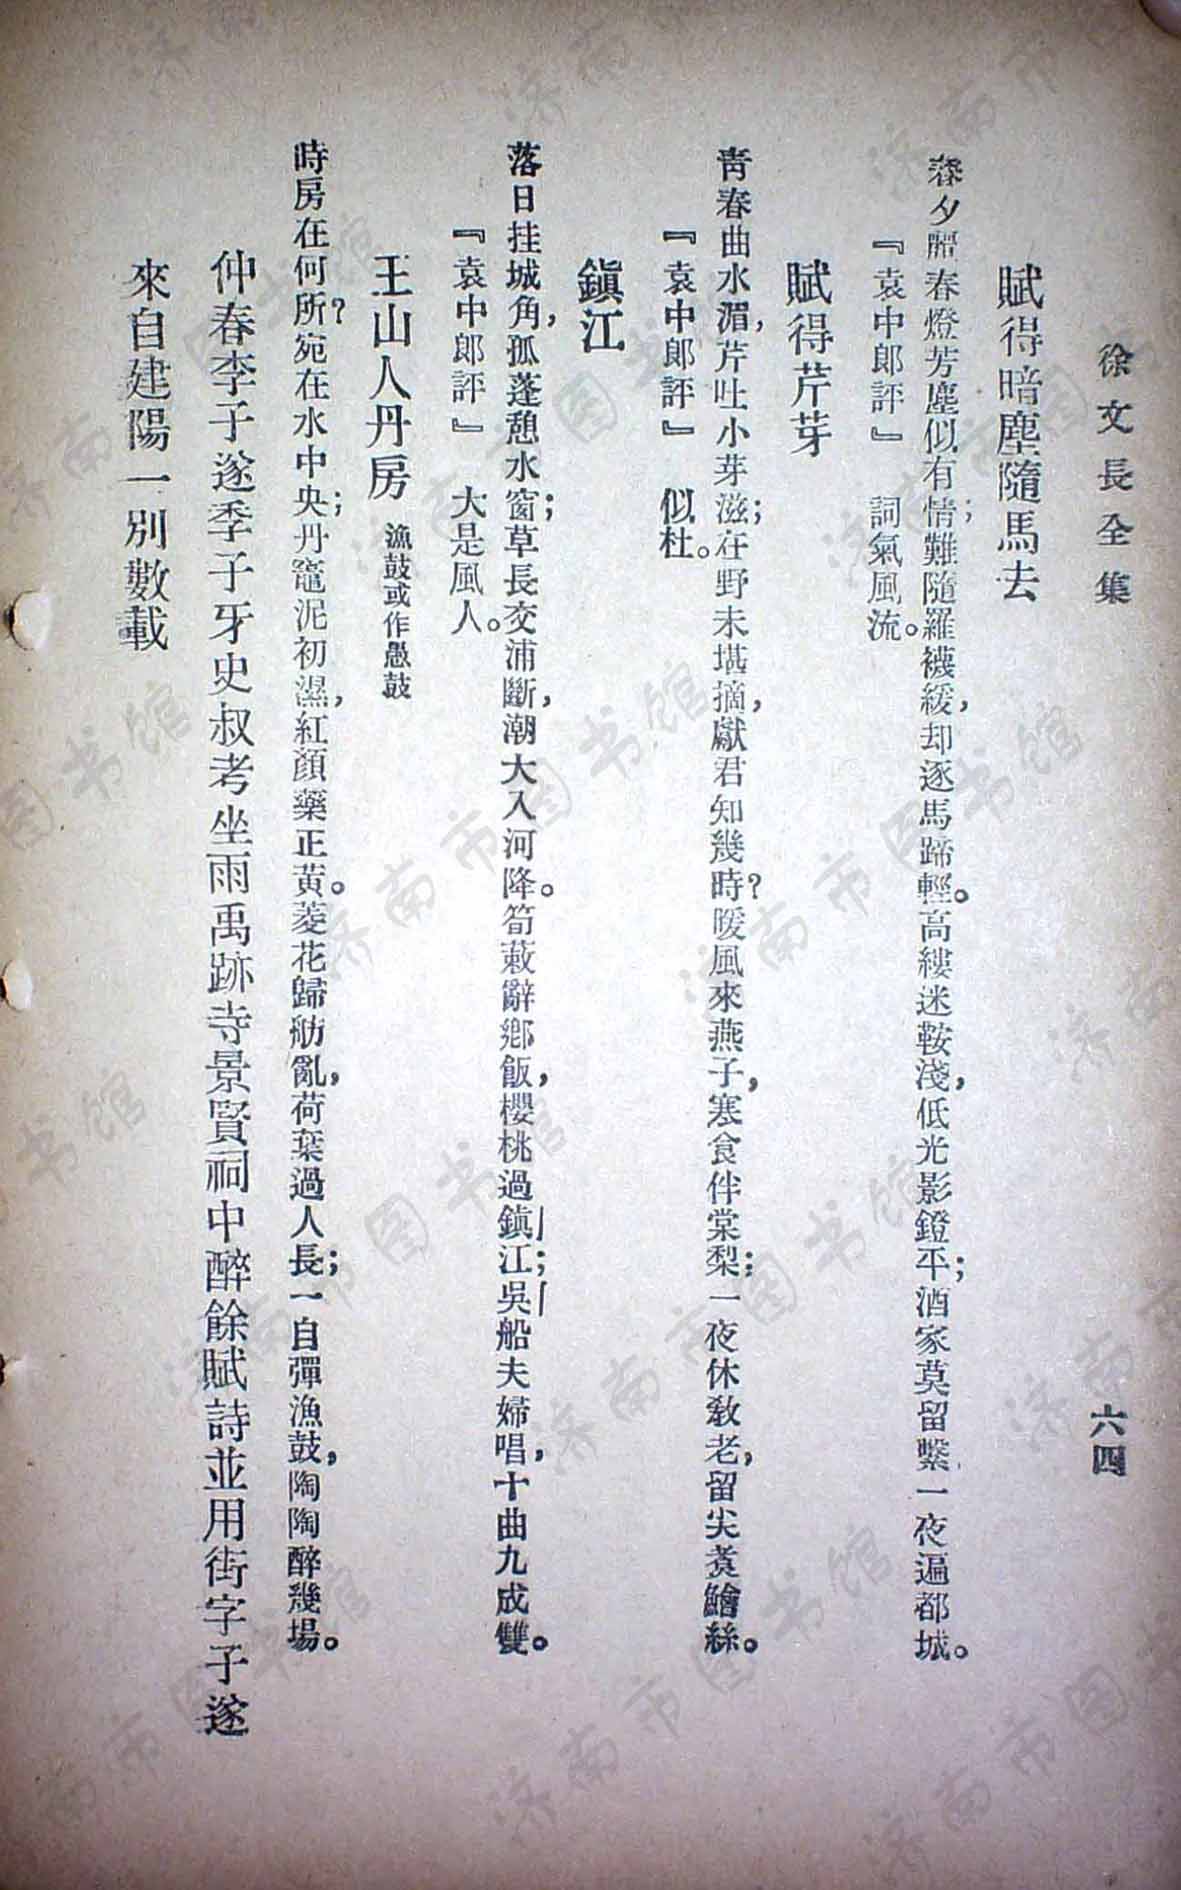 徐文長全集　六四
賦得暗塵隨馬去
春夕麗春燈芳塵似有情；難隨羅襪緩，却逐馬蹄輕。高縷迷鞍淺，低光影鐙平；酒家莫留繫，一夜遍都城。
『袁中郞評』　詞氣風流。
賦得芹芽
靑春曲水湄，芹吐小芽滋；在野未堪摘，獻君知幾時？暖風來燕子，寒食伴棠梨；一夜休敎老，留尖煮鱠絲。
『袁中郞評』　似杜。
鎭江
落日挂城角，孤蓬憩水窗；草長交浦斷，潮大入河降。筍蔌辭鄕飯，櫻桃過鎭江；吳船夫婦唱，十曲九成雙。
『袁中郞評』　大是風人。
王山人丹房　漁鼓或作愚鼓
時房在何所？宛在水中央；丹竈泥初濕，紅顏藥正黃。菱花歸舫亂，荷葉過人長；一自彈漁鼓，陶陶醉幾場。
仲春李子遂季子牙史叔考坐雨禹跡寺景賢祠中醉餘賦詩並用街字子遂
來自建陽一別數載
济南市图书馆